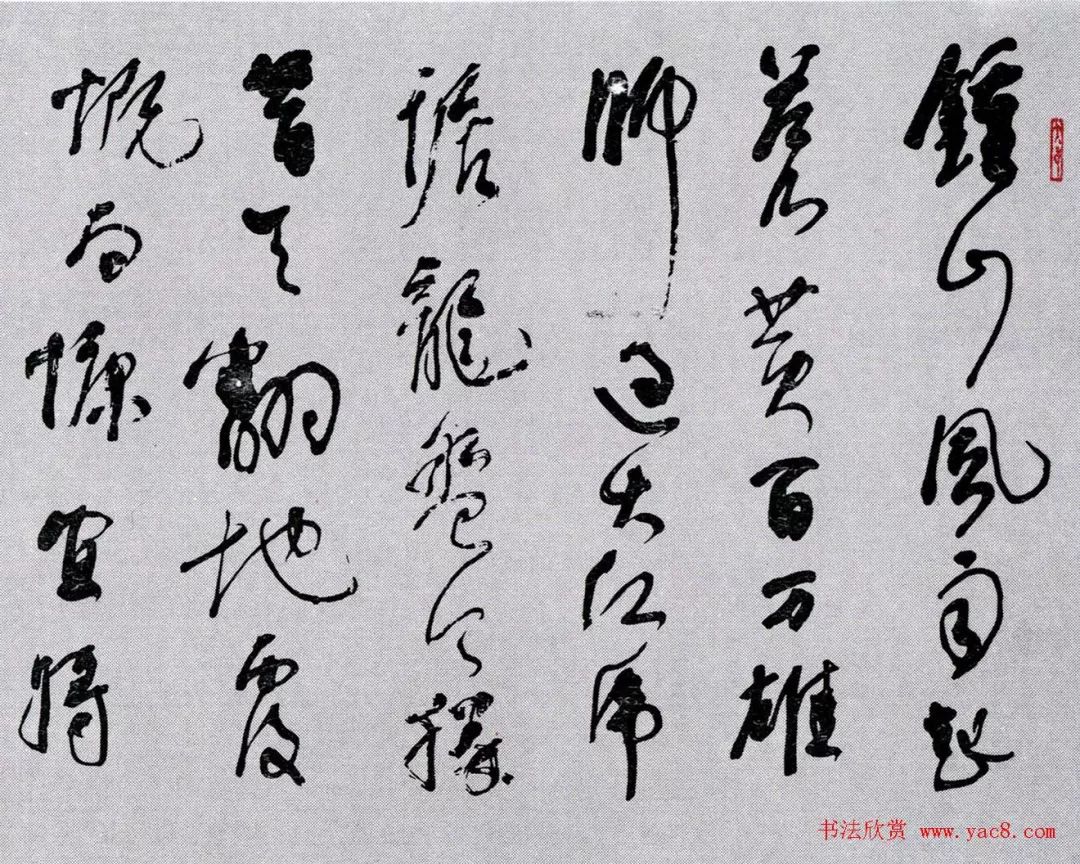 鍾山風雨起
蒼黄百万雄
師过大江虎
踞龍盤今勝
昔天翻地覆
慨而慷宜将
书法欣赏 www.yac8.com